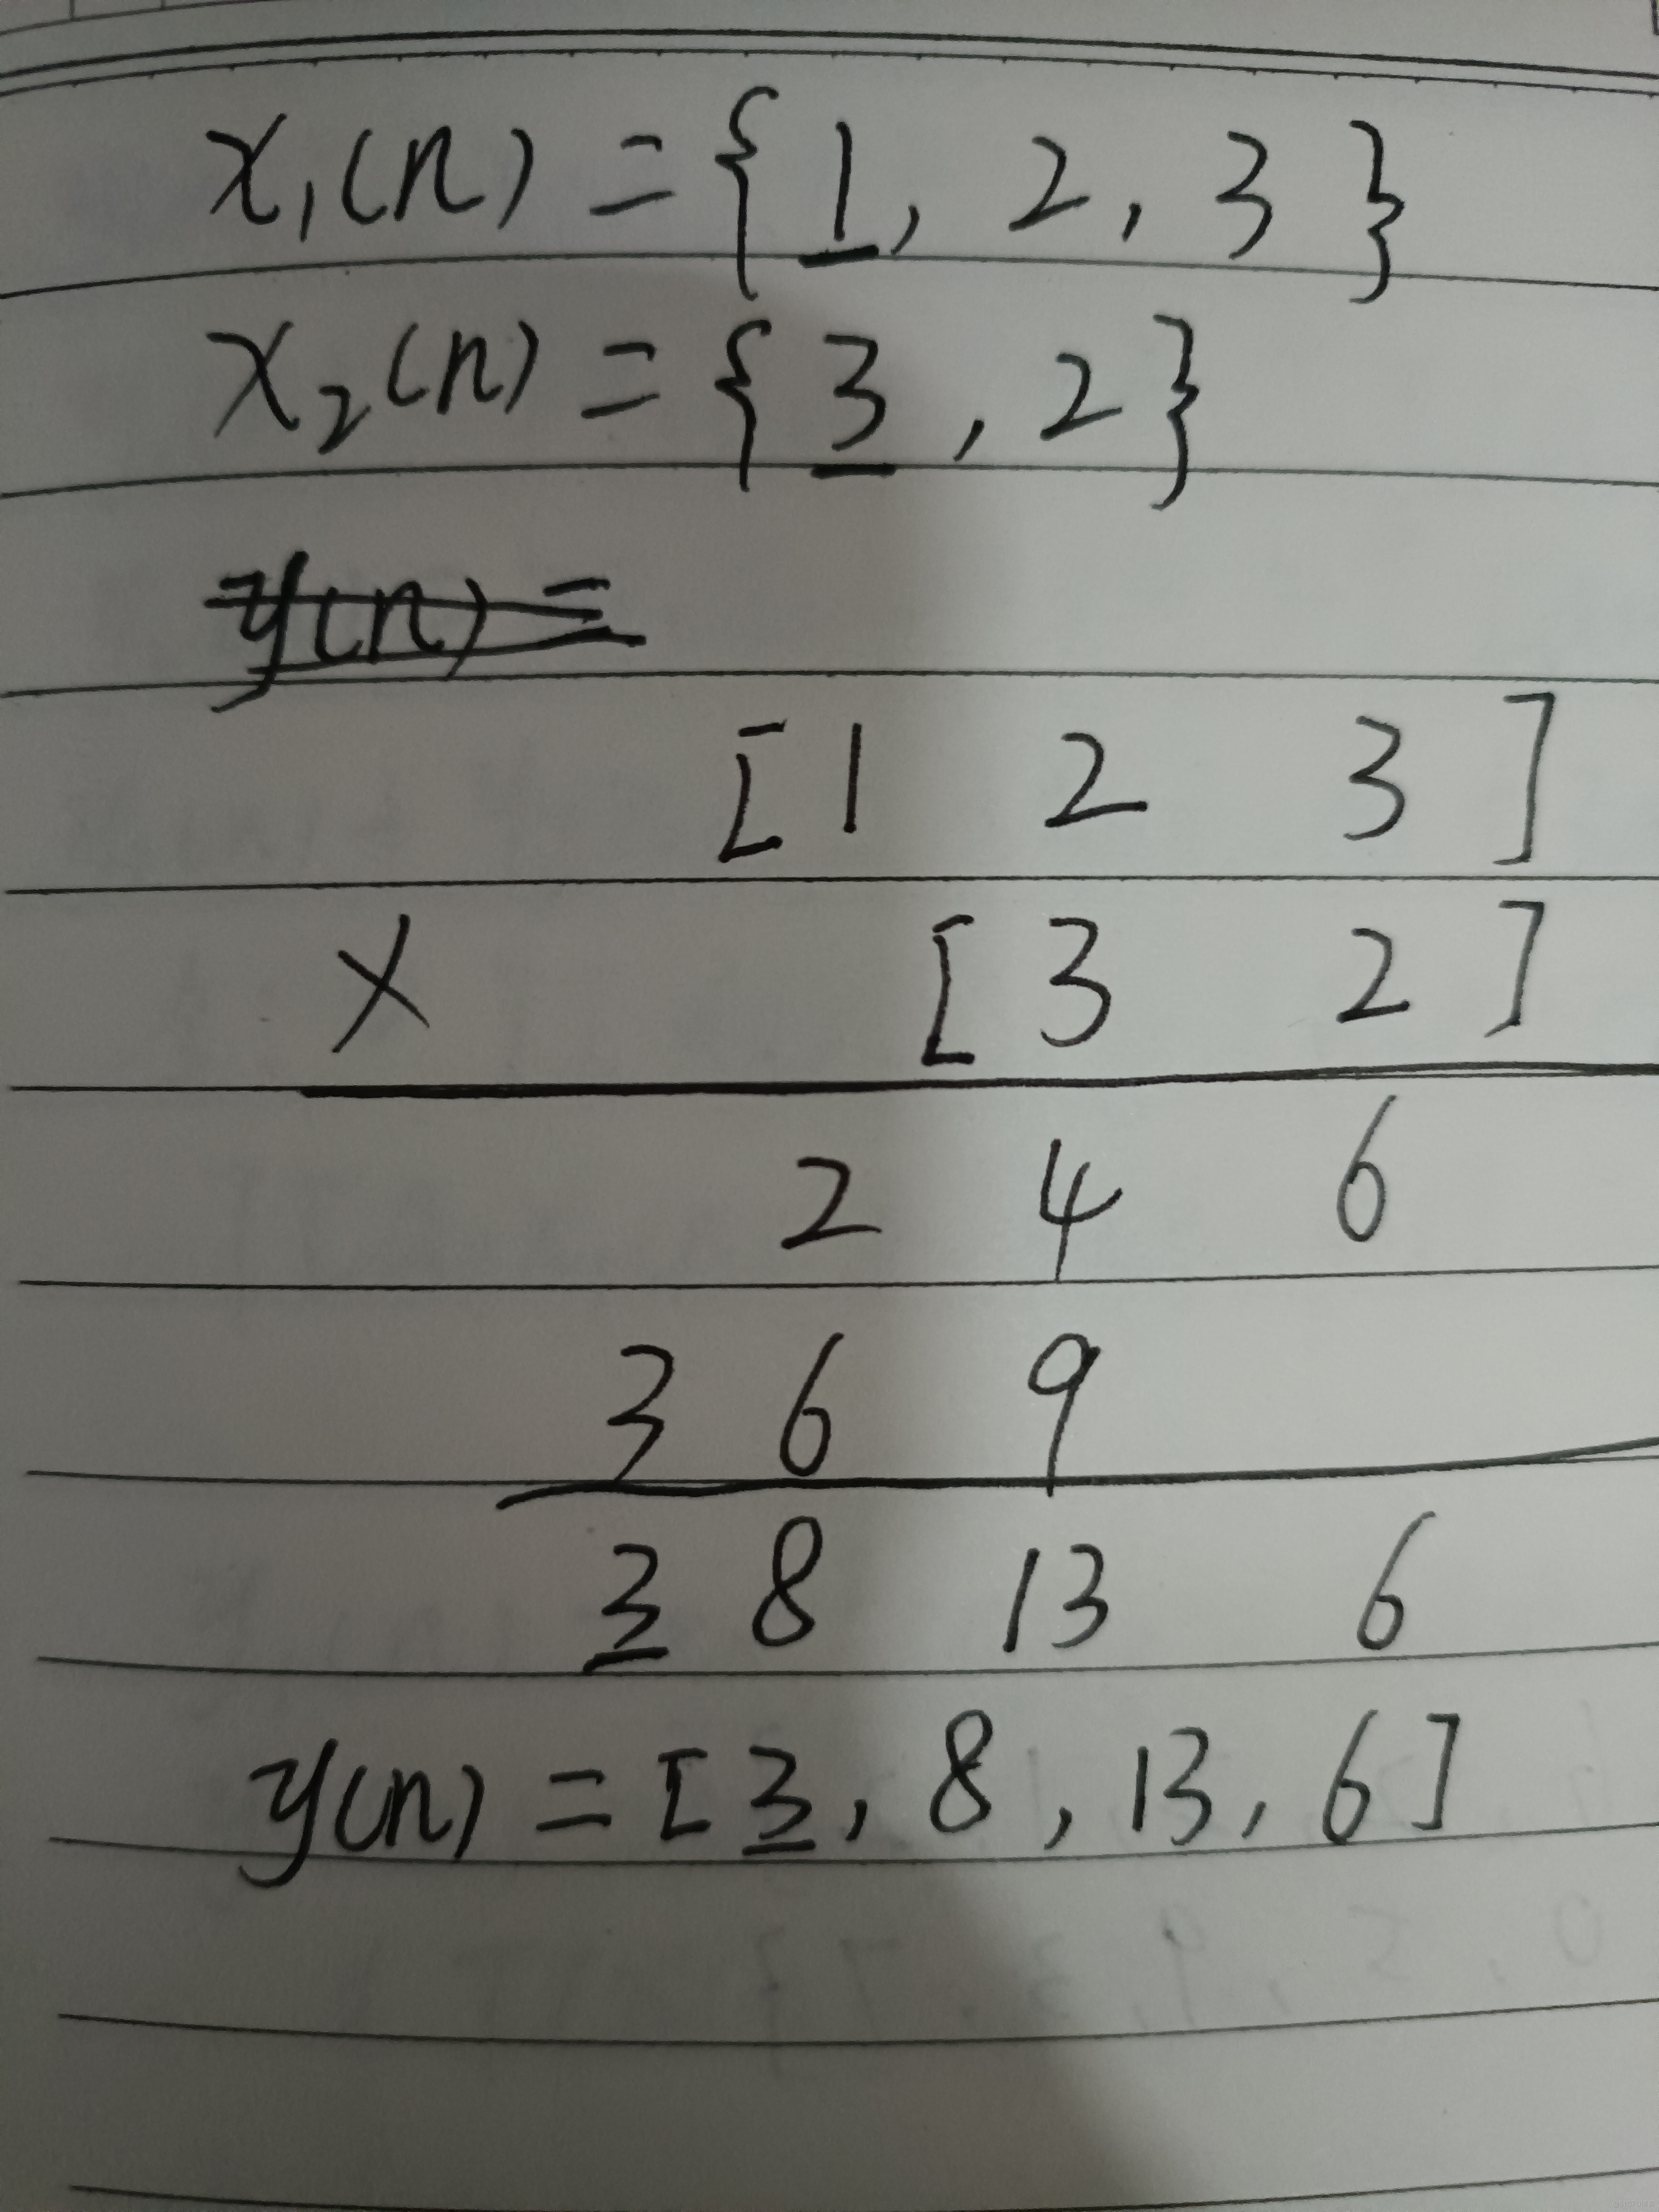 x₁(n) = {1, 2, 3}
x₂(n) = {3, 2}
y(n) =
[1 2 3]
× [3 2]
2 4 6
3 6 9
3 8 13 6
y(n) = [3, 8, 13, 6]